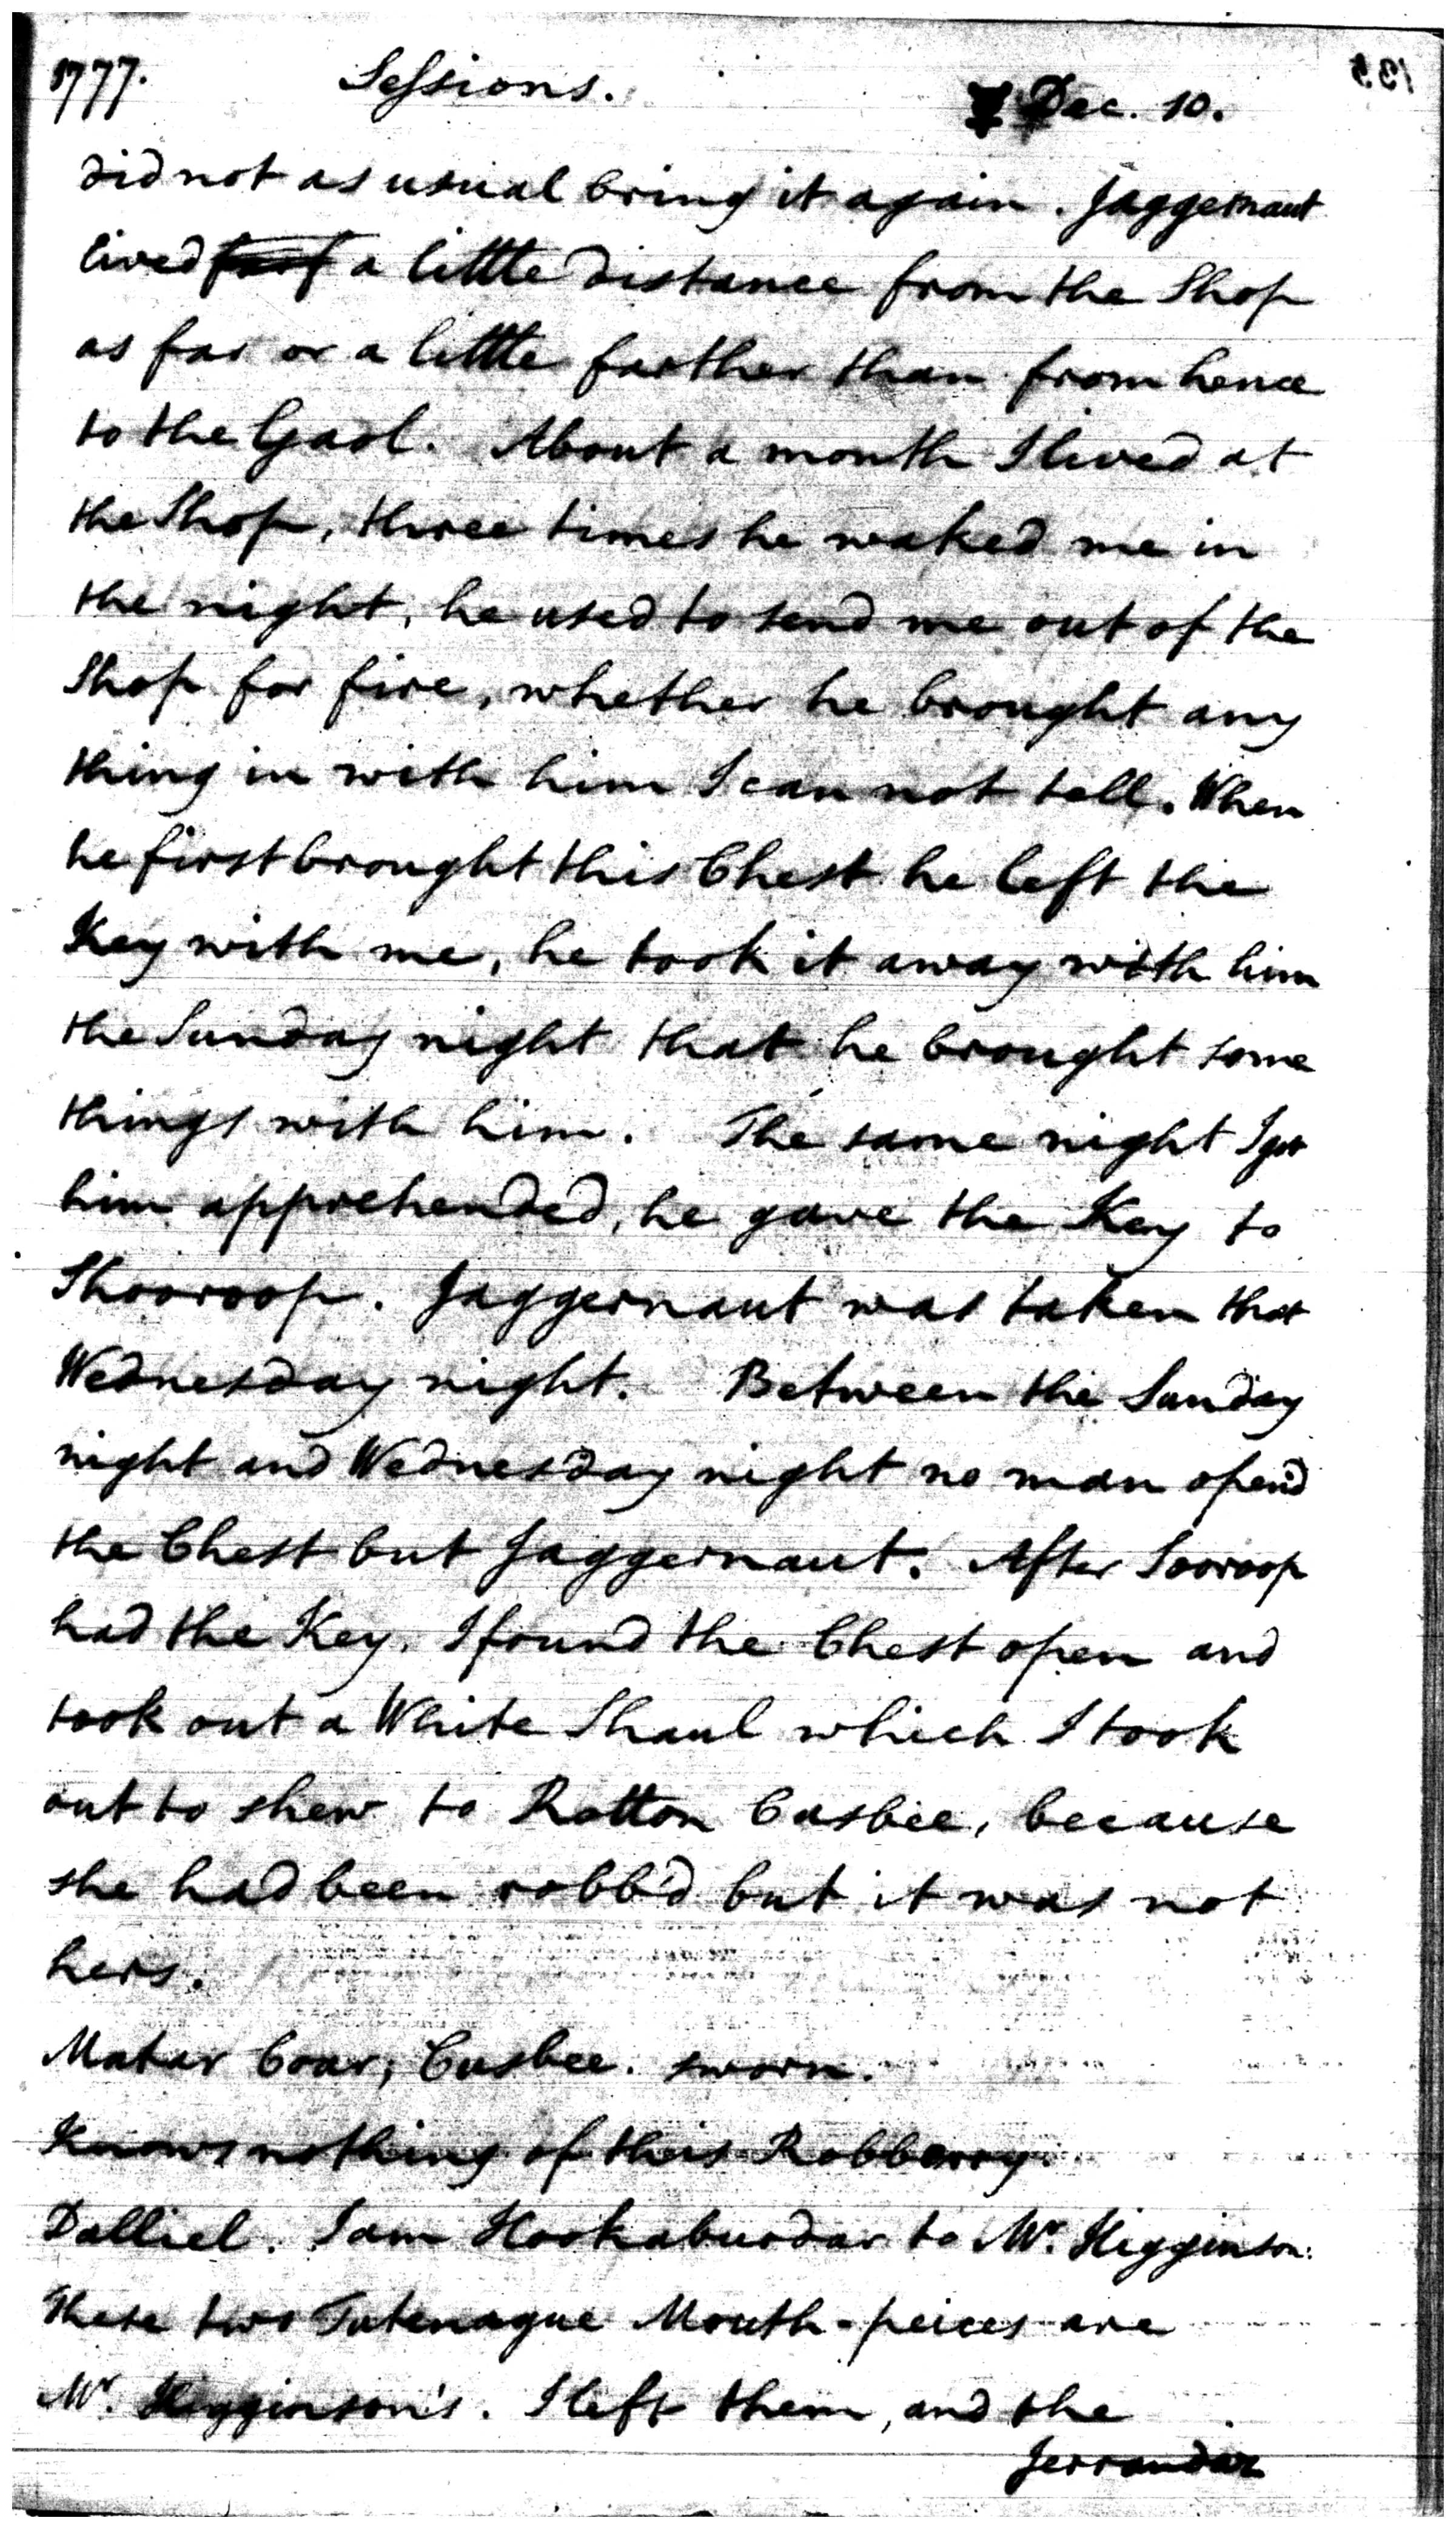 1777. Sessions. ☿ Dec. 10.
did not as usual bring it again. Jaggernaut
lived a little distance from the Shop
as far or a little farther than from hence
to the Gaol. About a month I lived at
the Shop, three times he waked me in
the night, he used to send me out of the
Shop for fire, whether he brought any
thing in with him I can not tell. When
he first brought this Chest he left the
Key with me, he took it away with him
the Sunday night that he brought some
things with him. The same night I got
him apprehended, he gave the Key to
Shooroop. Jaggernaut was taken that
Wednesday night. Between the Sunday
night and Wednesday night no man open'd
the Chest but Jaggernaut. After Sooroop
had the Key, I found the Chest open and
took out a White Shaul which I took
out to shew to Rotton Cusbee, because
she had been robb'd but it was not
hers.
Matar Coar, Cusbee. sworn.
Knows nothing of this Robberry.
Dalliel. I am Hookaburdar to Mr. Higginson:
These two Tutenague Mouth-peices are
Mr. Higginson's. I left them, and the
Jerrandar